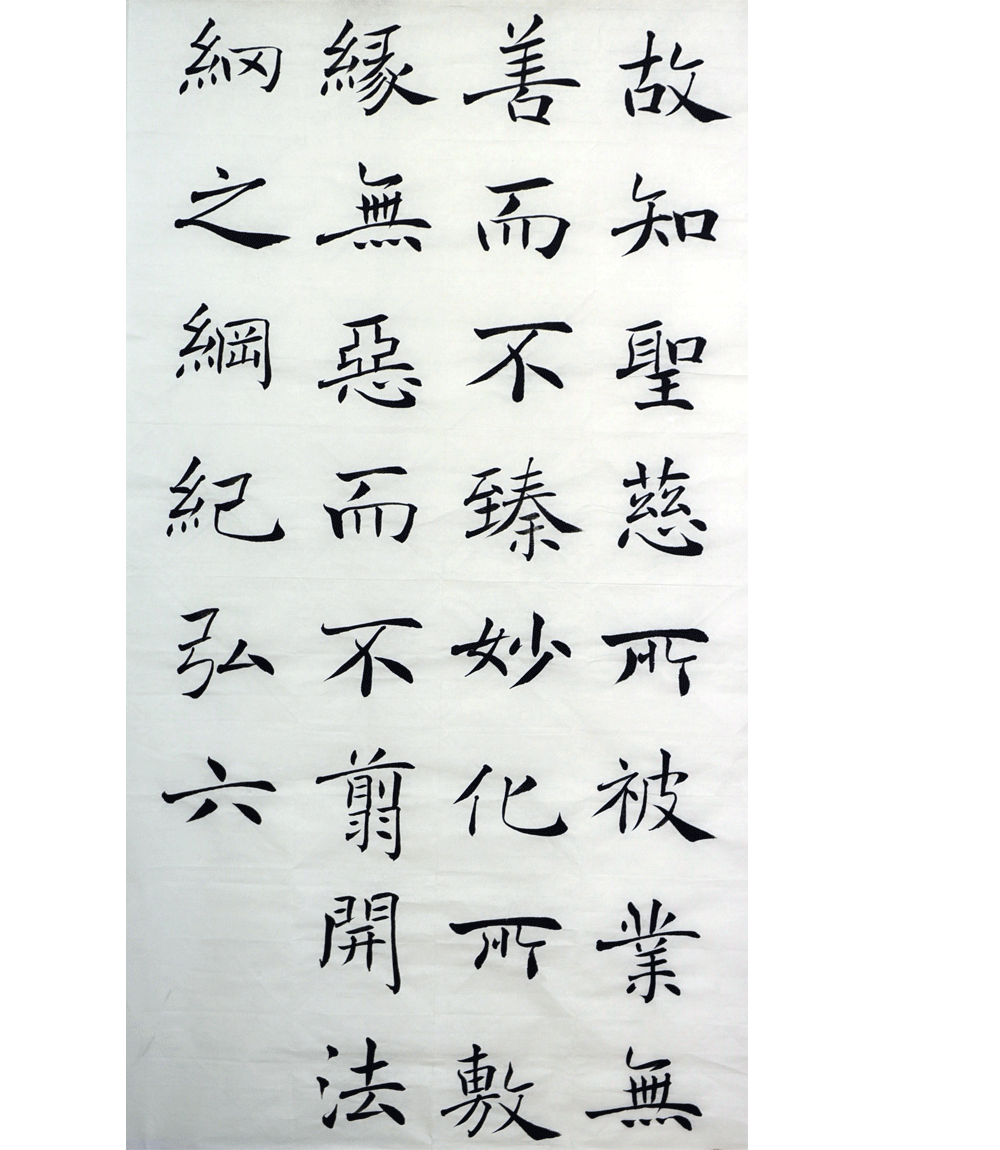 故知聖慈所被業無
善而不臻妙化所敷
緣無惡而不翦開法
網之綱紀弘六